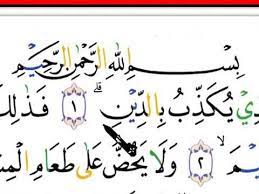 بِسْمِ اللَّهِ الرَّحْمَٰنِ الرَّحِيمِ
يُكَذِّبُ بِالدِّينِ ۝١ فَذَٰلِكَ
۝٢ وَلَا يَحُضُّ عَلَىٰ طَعَامِ